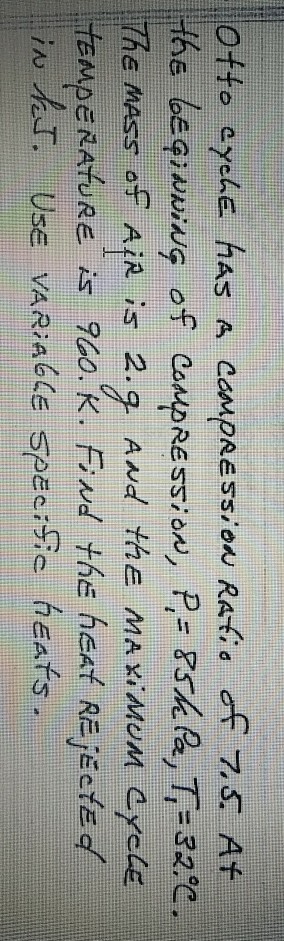 Otto cycle has a compression ratio of 7.5. At
the beginning of compression, P₁=85kPa, T₁=32.°C.
The mass of air is 2.g and the maximum cycle
temperature is 960. K. Find the heat rejected
in kJ. Use variable specific heats.